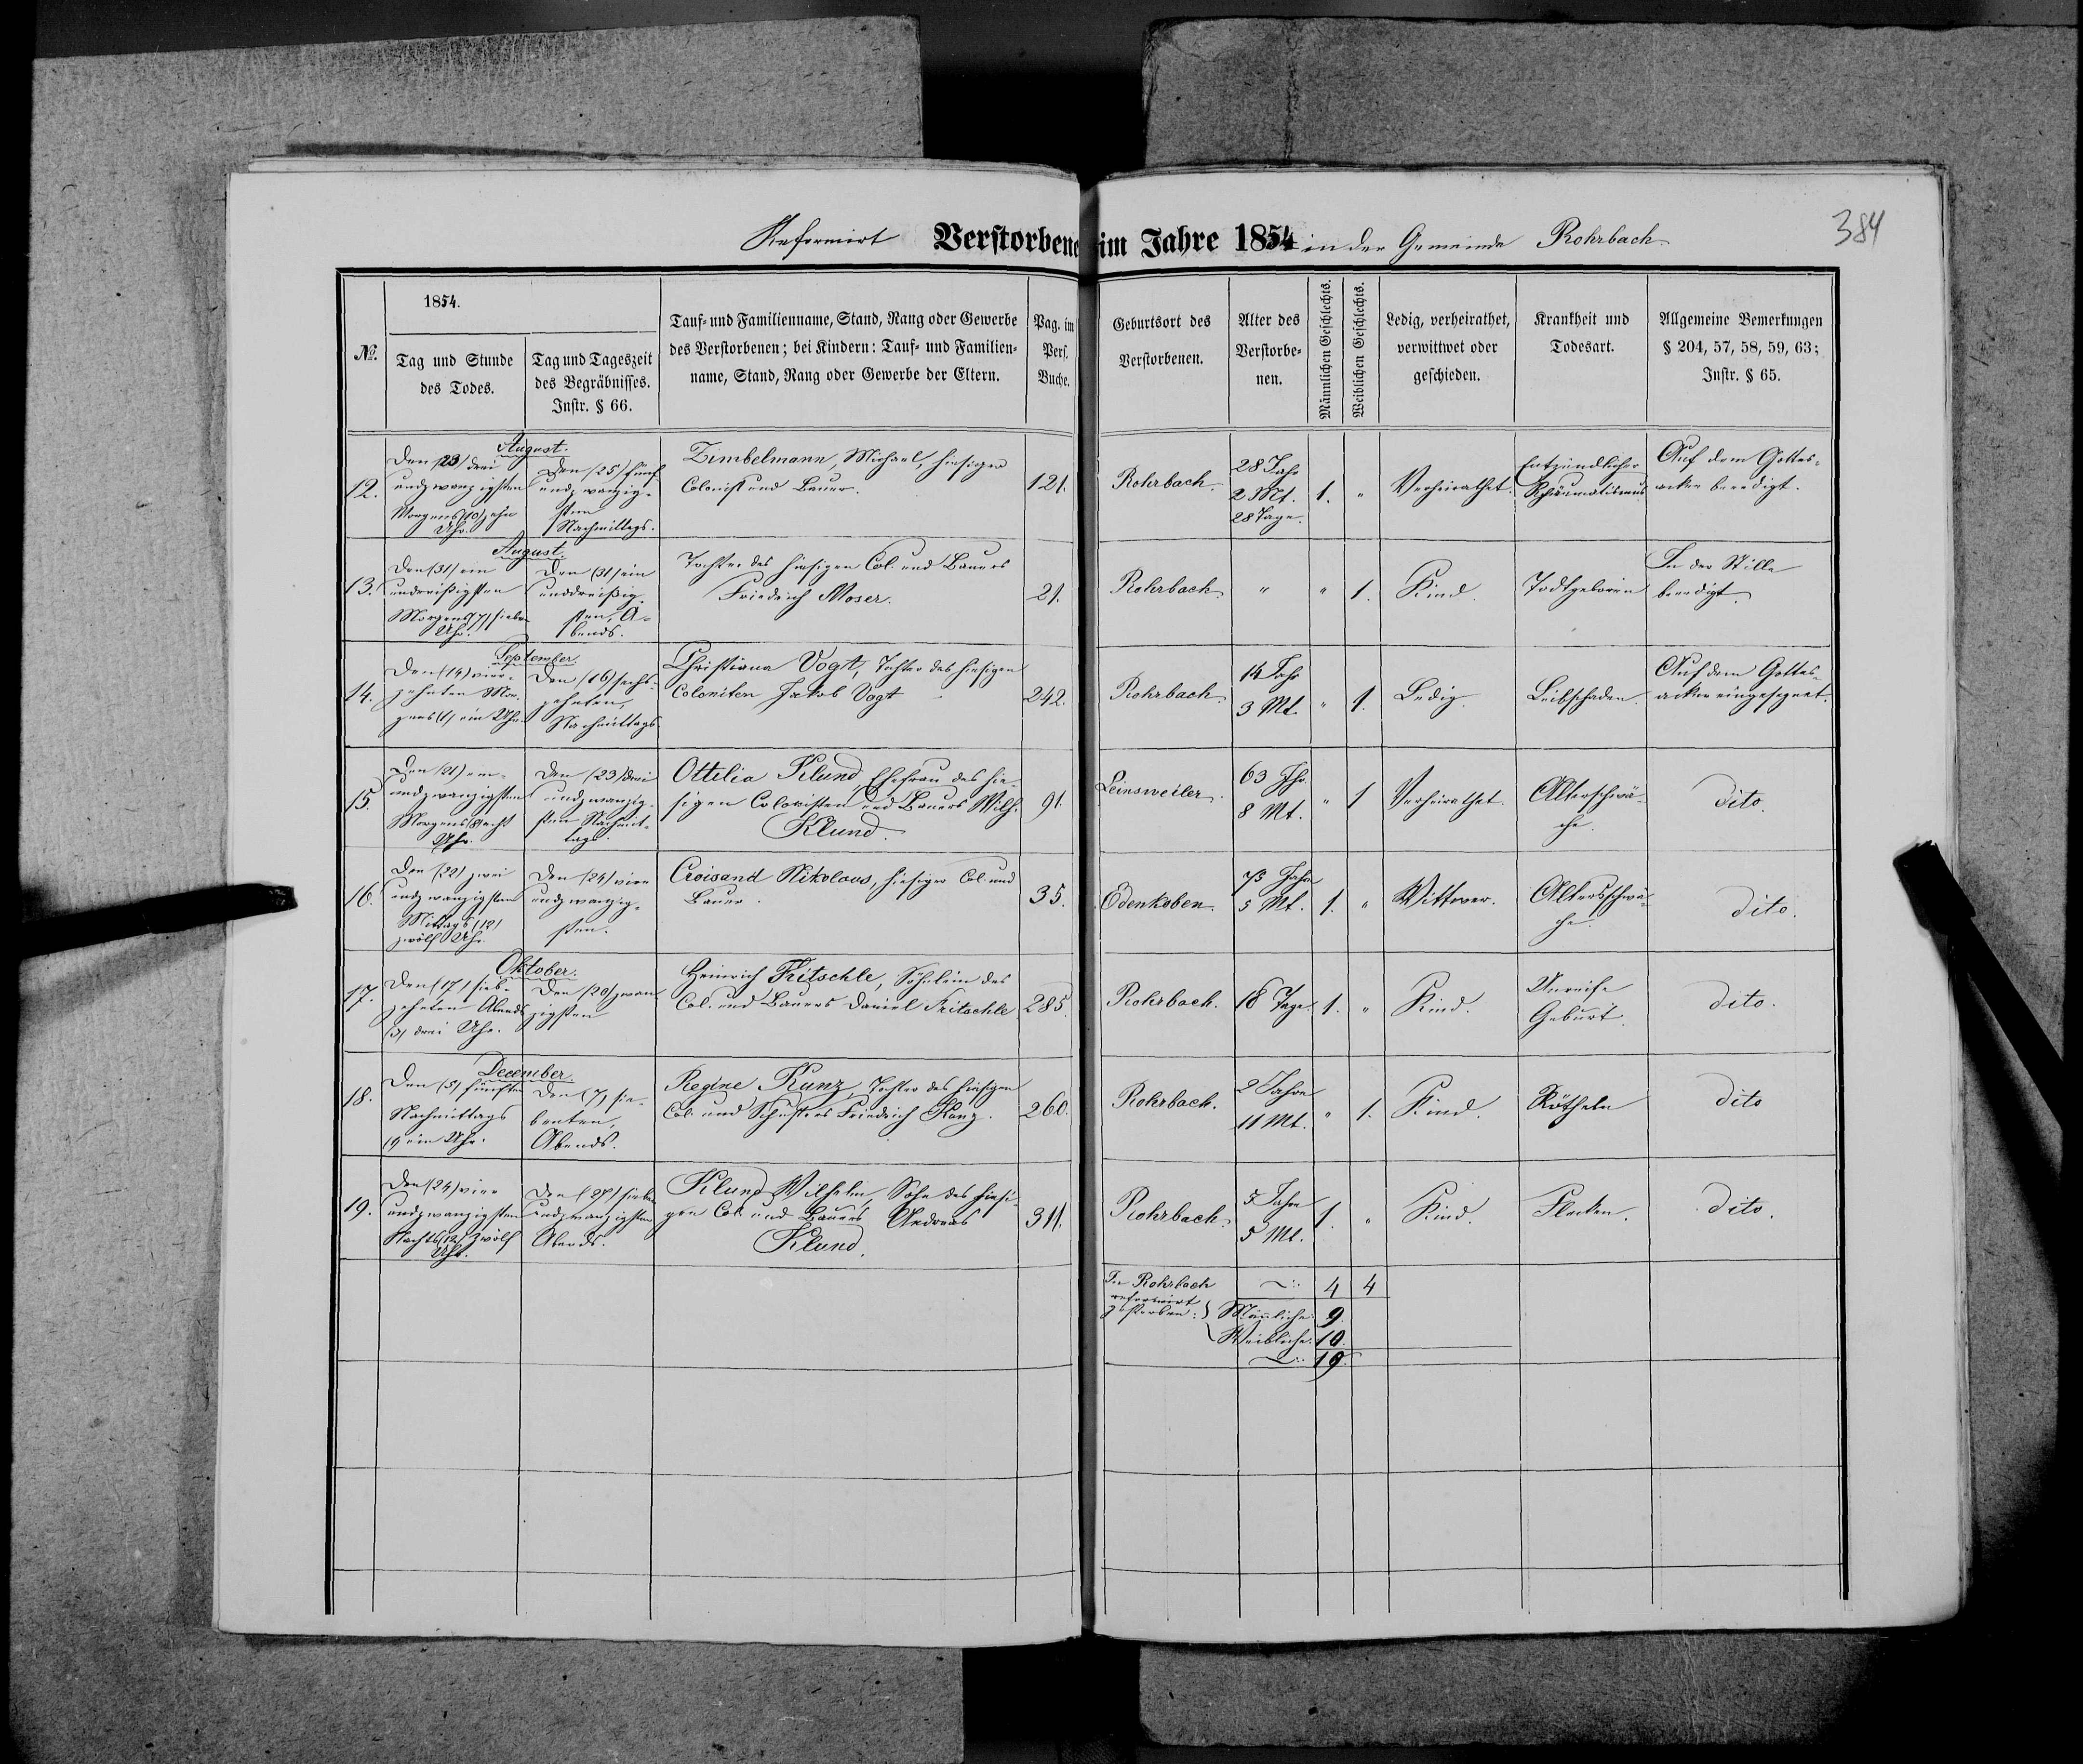 Reformirt Verstorbene im Jahre 1854 in der Gemeinde Rohrbach
384
№.
1854.
Tag und Stunde
des Todes.
Tag und Tageszeit
des Begräbnisses.
Instr. § 66.
Tauf- und Familienname, Stand, Rang oder Gewerbe
des Verstorbenen; bei Kindern: Tauf- und Familien-
name, Stand, Rang oder Gewerbe der Eltern.
Pag. im
Pers.
Buche.
Geburtsort des
Verstorbenen.
Alter des
Verstorbe-
nen.
Männlichen Geschlechts.
Weiblichen Geschlechts.
Ledig, verheirathet,
verwittwet oder
geschieden.
Krankheit und
Todesart.
Allgemeine Bemerkungen
§ 204, 57, 58, 59, 63;
Instr. § 65.
August.
12.
Den (23) drei
undzwanzigsten
Morgens (10) zehn
Uhr.
Den (25) fünf
undzwanzig-
sten
Nachmittags.
Zimbelmann, Michael, hiesiger
Colonist und Bauer.
121.
Rohrbach.
28 Jahr
2 Mt.
28 Tage.
1.
"
Verheirathet.
Entzündlicher
Rheumatismus
Auf dem Gottes-
acker beerdigt.
August.
13.
Den (31) ein
unddreißigsten
Morgens (7) sieben
Uhr.
Den (31) ein
unddreißig-
sten, A-
bends.
Tochter des hiesigen Col. und Bauers
Friedrich Moser.
21.
Rohrbach
"
"
1.
Kind.
Todtgeboren
In der Stille
beerdigt.
September.
14.
Den (14) vier-
zehnten Mor-
gens (1) ein Uhr.
Den (16) sechs-
zehnten,
Nachmittags
Christiana Vogt, Tochter des hiesigen
Colonisten Jakob Vogt
242.
Rohrbach.
14 Jahr
3 Mt.
"
1.
Ledig
Leibschaden.
Auf dem Gottes-
acker eingesegnet.
15.
Den (21) ein-
undzwanzigsten
Morgens (8) acht
Uhr.
Den (23) drei
undzwanzig-
sten Nachmit-
tags.
Ottilia Klund, Ehefrau des hie-
sigen Colonisten und Bauers Wilh.
Klund.
91.
Leinsweiler.
63 Jhr.
8 Mt.
"
1
Verheirathet.
Altersschwä-
che.
dito.
16.
Den (22) zwei
undzwanzigsten
Mittags (12)
zwölf Uhr.
Den (24) vier
undzwanzig-
sten.
Croisand Nikolaus, hiesiger Col. und
Bauer.
35.
Edenkoben.
73 Jahr
5 Mt.
1.
"
Wittwer.
Altersschwä-
che.
dito.
Oktober.
17.
Den (17) sieb-
zehnten Abends
(3) drei Uhr.
Den (20) zwan
zigsten
Heinrich Fritschle, Söhnlein des
Col. und Bauers Daniel Fritschle
285.
Rohrbach.
18 Tage.
1.
"
Kind.
Unreife
Geburt.
dito.
December.
18.
Den (5) fünften
Nachmittags
(1) ein Uhr.
Den (7) sie-
benten,
Abends.
Regine Kunz, Tochter des hiesigen
Col. und Schusters Friedrich Kunz.
260.
Rohrbach.
2 Jahre
11 Mt.
"
1.
Kind.
Rötheln
dito
19.
Den (24) vier
undzwanzigsten
Nachts (12) zwölf
Uhr.
Den (27) sieben
undzwanzigsten
Abends.
Klund Wilhelm, Sohn des hiesi-
gen Col. und Bauers Andreas
Klund.
311.
Rohrbach.
5 Jahre
5 Mt.
1.
"
Kind.
Flecken.
dito.
In Rohrbach
reformirt
gestorben:
4
4
Männliche: 9.
Weibliche: 10.
19.